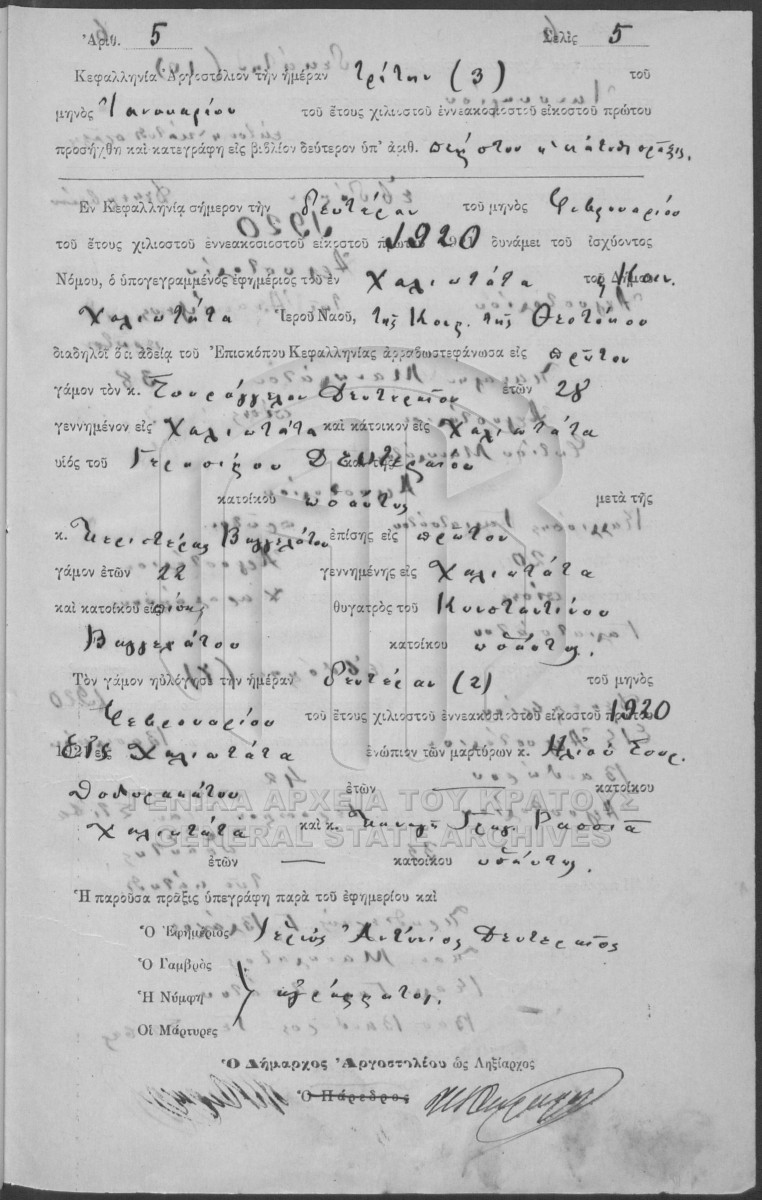 Ἀριθ. 5 Σελὶς 5
Κεφαλληνία Ἀργοστόλιον τὴν ἡμέραν τρίτην (3) τοῦ
μηνὸς Ἰανουαρίου τοῦ ἔτους χιλιοστοῦ ἐννεακοσιοστοῦ εἰκοστοῦ πρώτου
προσήχθη καὶ κατεγράφη εἰς βιβλίον δεύτερον ὑπ' ἀριθ. ἡ κάτωθι πρᾶξις.
Ἐν Κεφαλληνίᾳ σήμερον τὴν δευτέραν τοῦ μηνὸς Φεβρουαρίου
τοῦ ἔτους χιλιοστοῦ ἐννεακοσιοστοῦ εἰκοστοῦ 1920 δυνάμει τοῦ ἰσχύοντος
Νόμου, ὁ ὑπογεγραμμένος ἐφημέριος τοῦ ἐν Χαλιωτάτα τοῦ Δήμου Κοιν.
Χαλιωτάτα Ἱεροῦ Ναοῦ, τῆς Κοιμ. τῆς Θεοτόκου
διαδηλοῖ ὅτι ἀδείᾳ τοῦ Ἐπισκόπου Κεφαλληνίας ἀρραβωστεφάνωσα εἰς πρῶτον
γάμον τὸν κ. Δευτεραῖον ἐτῶν 28
γεννημένον εἰς Χαλιωτάτα καὶ κάτοικον εἰς Χαλιωτάτα
υἱὸς τοῦ Γερασίμου Δευτεραίου
κατοίκου ὡσαύτως μετὰ τῆς
κ. Περιστέρας Βαγγελάτου ἐπίσης εἰς πρῶτον
γάμον ἐτῶν 22 γεννημένης εἰς Χαλιωτάτα
καὶ κατοίκου εἰς θυγατρὸς τοῦ Κωνσταντίνου
Βαγγελάτου κατοίκου ὡσαύτως.
Τὸν γάμον ηὐλόγησε τὴν ἡμέραν δευτέραν (2) τοῦ μηνὸς
Φεβρουαρίου τοῦ ἔτους χιλιοστοῦ ἐννεακοσιοστοῦ εἰκοστοῦ πρώτου 1920
εἰς Χαλιωτάτα ἐνώπιον τῶν μαρτύρων κ. Ἠλιοῦ
ἐτῶν — κατοίκου
Χαλιωτάτα καὶ κ. Παναγῆ Βασσιᾶ
ἐτῶν — κατοίκου ὡσαύτως.
Ἡ παροῦσα πρᾶξις ὑπεγράφη παρὰ τοῦ ἐφημερίου καὶ
Ὁ Ἐφημέριος Ἱερεὺς Ἀντώνιος Δευτεραῖος
Ὁ Γαμβρὸς
Ἡ Νύμφη ἀγράμματοι.
Οἱ Μάρτυρες
Ὁ Δήμαρχος Ἀργοστολίου ὡς Ληξίαρχος
Ὁ Πάρεδρος
ΓΕΝΙΚΑ ΑΡΧΕΙΑ ΤΟΥ ΚΡΑΤΟΥΣ
GENERAL STATE ARCHIVES